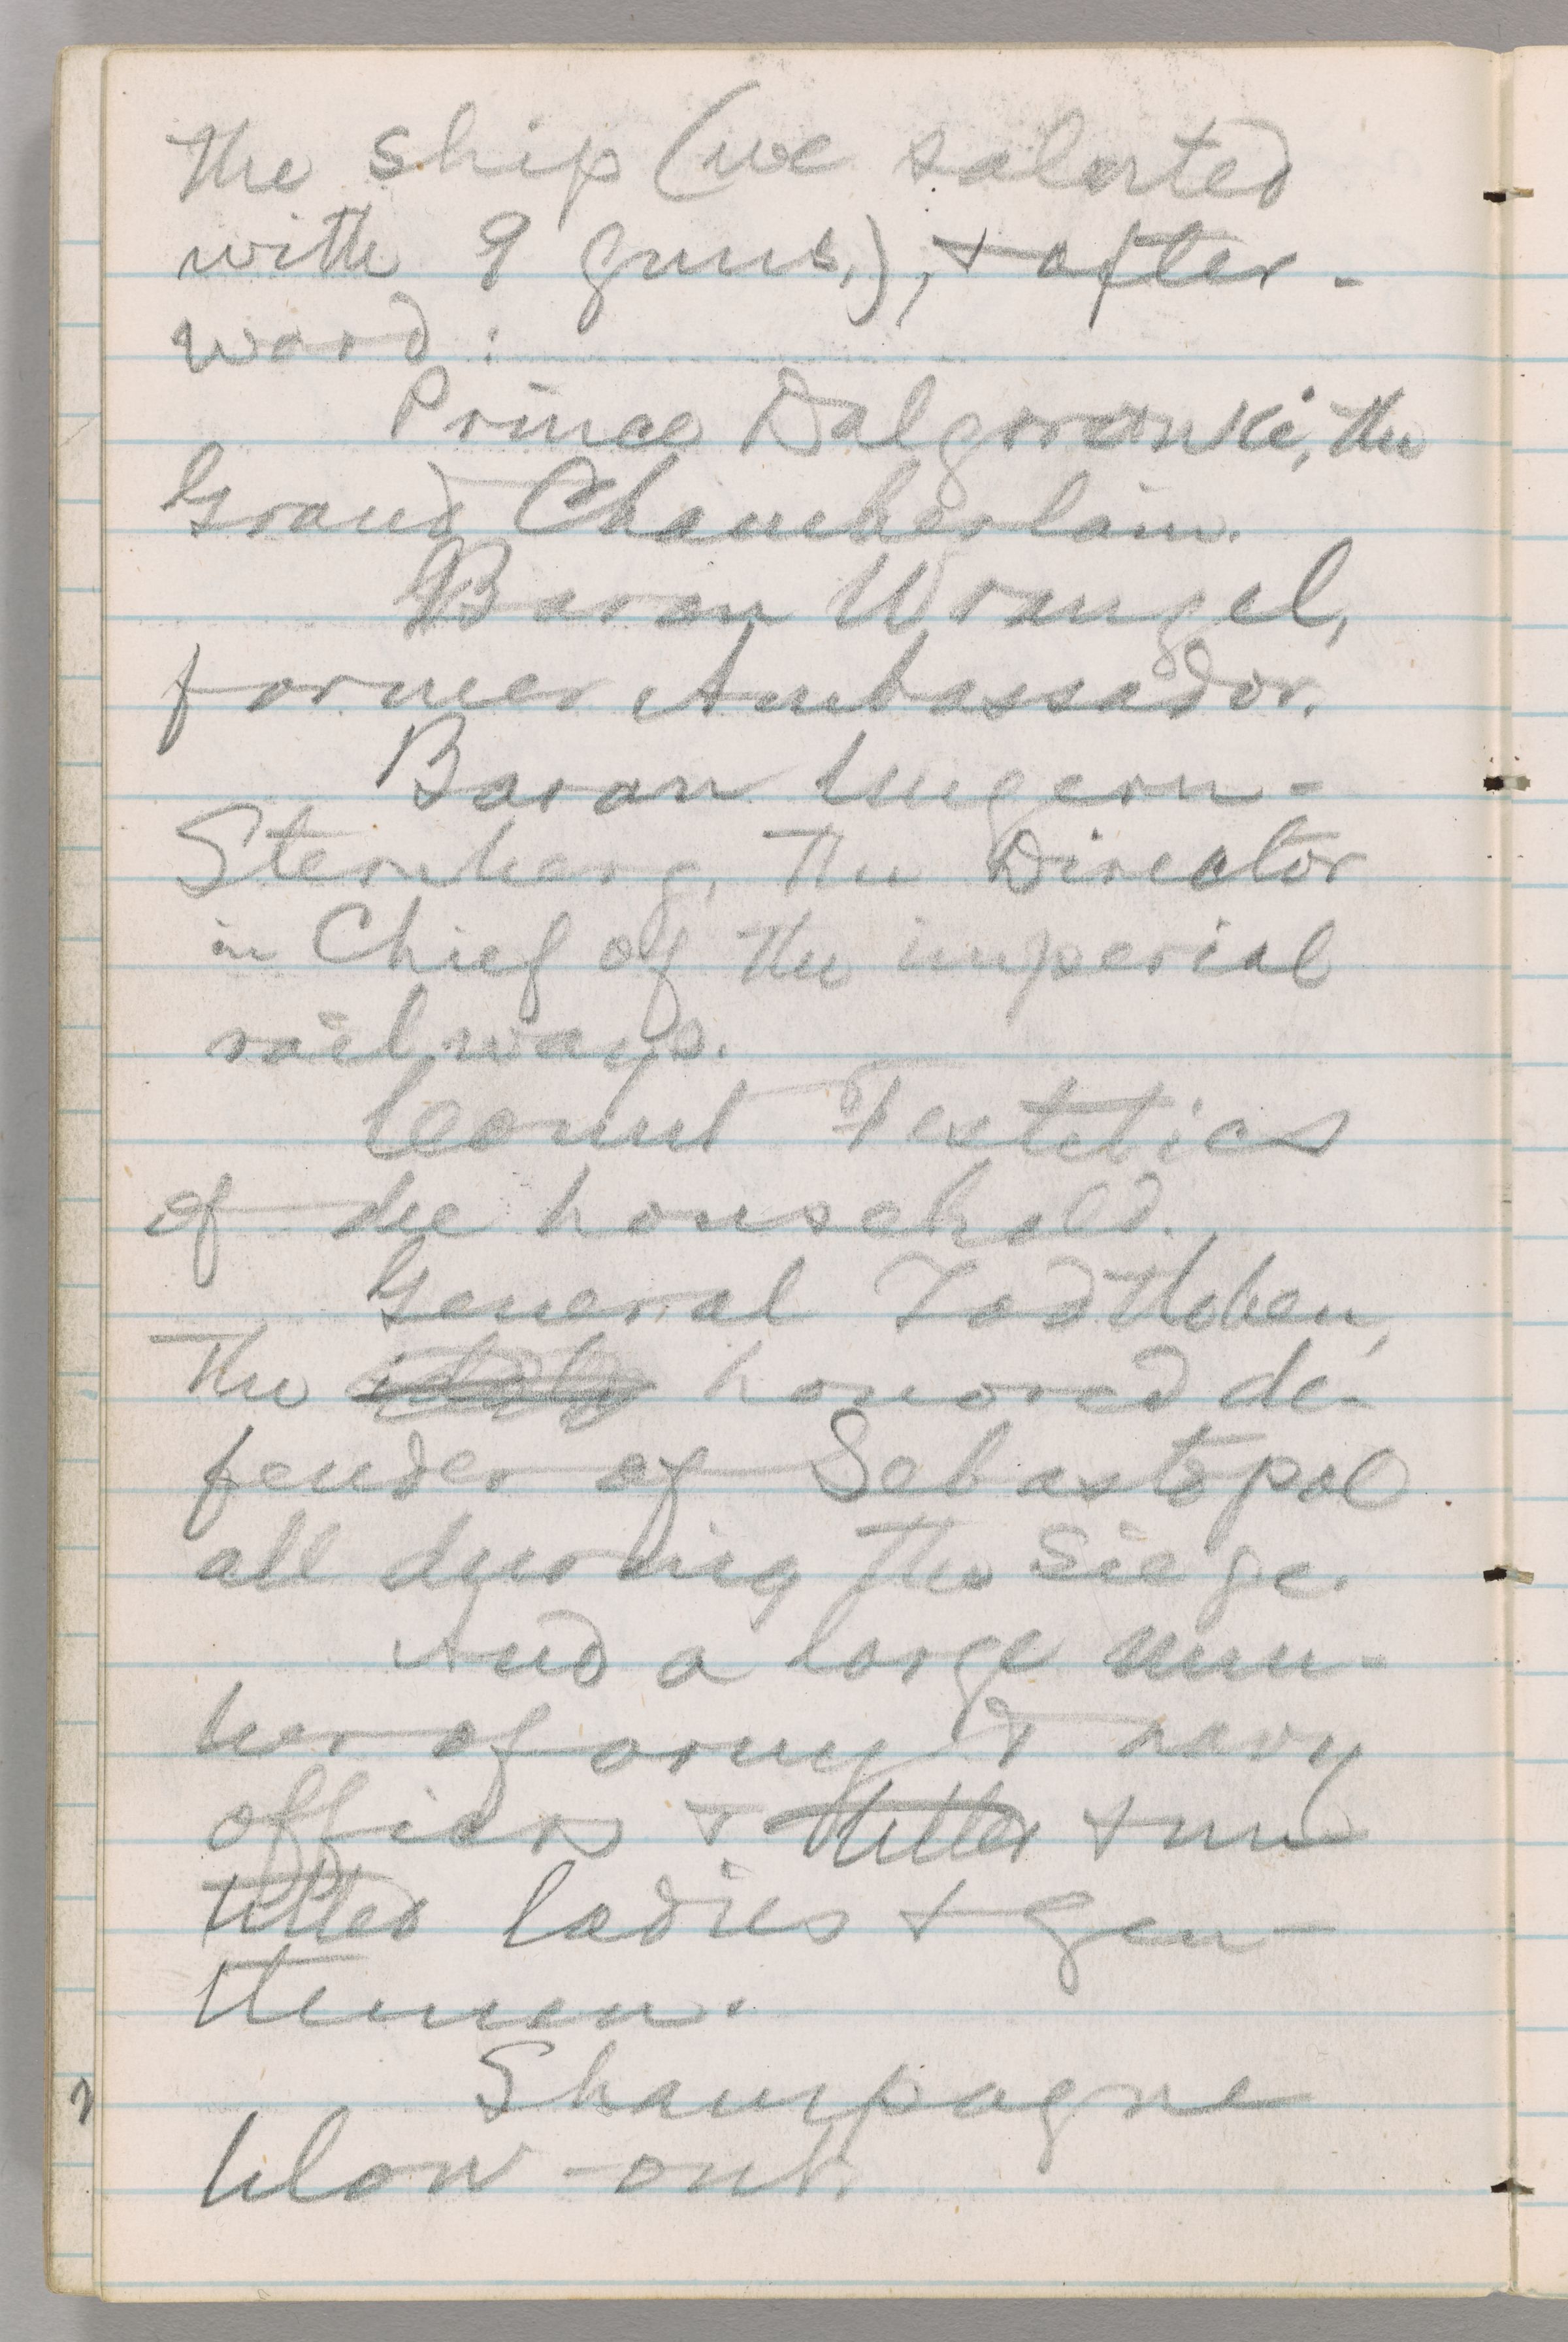 the ship (we saluted
with 9 guns.), & after-
ward:
Prince Dalgorouki, the
Grand Chamberlain.
Baron Wrangel,
former Ambassador.
Baron Ungern-
Sternberg, the Director
in Chief of the imperial
railways.
Count Festetics
of the household.
General Todtleben,
the honored de-
fender of Sebastopol
all during the siege.
And a large num-
ber of army & navy
officers & titled & un
titled ladies & gen-
tlemen.
Shampagne
blow-out.